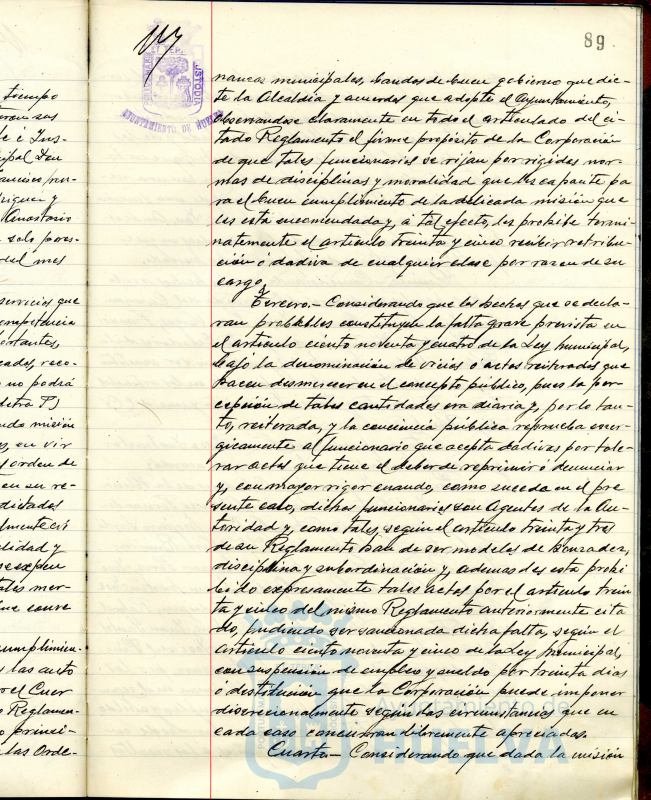 tiempo
e é Ins-
cipal Don
rancisco
riguez y
Anastasio
solo
del mes
servicios que
ompetencia
ortantes,
cados, reco-
no podrá
letra P)
misión
en vir
orden de
en su re-
dictados
lmente
lidad y
se
ales mer-
que
cumplimien-
las
or el Cuer
Reglamen-
princi-
las Orde-
89
AYUNTAMIENTO DE HUELVA
nanzas municipales, bandos de buen gobierno que dic-
te la Alcaldía y acuerdos que adopte el Ayuntamiento,
observandose claramente en todo el articulado del ci-
tado Reglamento el firme propósito de la Corporación
de que tales funcionarios se rijan por rigidas nor-
mas de disciplinas y moralidad que les capacite pa
ra el buen cumplimiento de la delicada misión que
les está encomendada y, a tal efecto, les prohibe termi-
natemente el articulo treinta y cinco recibir retribu-
ción ó dadiva de cualquier clase por razon de su
cargo.
Tercero.- Considerando que los hechos que se decla-
ran probables constituyen la falta grave prevista en
el articulo ciento noventa y cuatro de la Ley Municipal,
bajo la denominación de vicios ó actos reiterados que
hacen desmerecer en el concepto público, pues la per-
cepción de tales cantidades era diaria y, por lo tan-
to, reiterada, y la conciencia publica reprueba ener-
gicamente al funcionario que acepta dadivas por tole-
rar actos que tiene el deber de reprimir ó denunciar
y, con mayor rigor cuando, como suceda en el pre
sente caso, dichos funcionarios son Agentes de la Au-
toridad y, como tales, según el articulo treinta y tres
de su Reglamento han de ser modelos de honradez,
disciplina y subordinación y, ademas de esta prohi
bido expresamente tales actos por el articulo trein
ta y cinco del mismo Reglamento anteriormente cita
do, pudiendo ser sancionada dicha falta, según el
articulo ciento noventa y cinco de la Ley Municipal,
con suspensión de empleo y sueldo por treinta dias
o destitución que la Corporación puede imponer
discrecionalmente según las circunstancias que en
cada caso concurran libremente apreciadas.
Cuarto.- Considerando que dada la misión
Ayuntamiento de
HUELVA